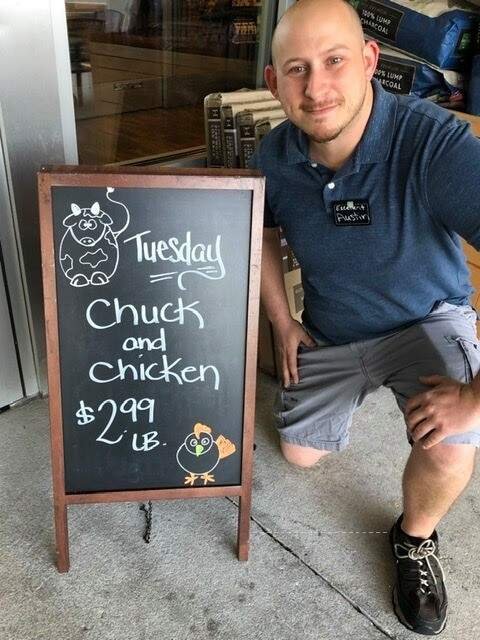 100% LUMP
CHARCOAL
100% LUMP
CHARCOAL
Austin
Tuesday
Chuck
and
Chicken
$2.99
LB.